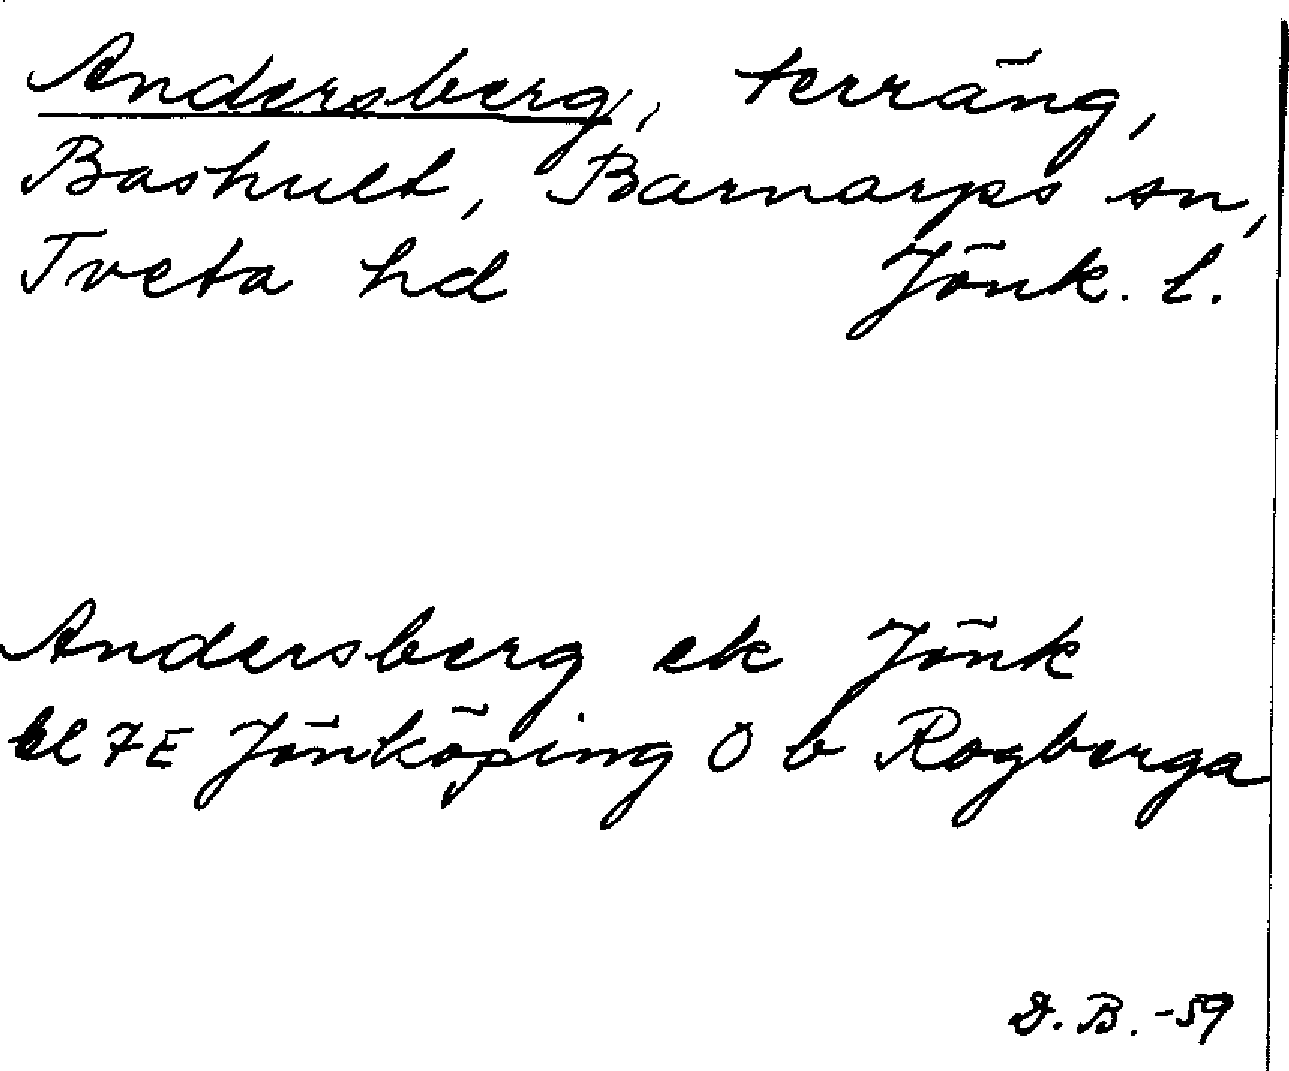 Andersberg, terräng,
Bashult, Barnarps sn,
Tveta hd Jönk. l.
Andersberg ek Jönk
bl 7E Jönköping O b Rogberga
D. B. -59